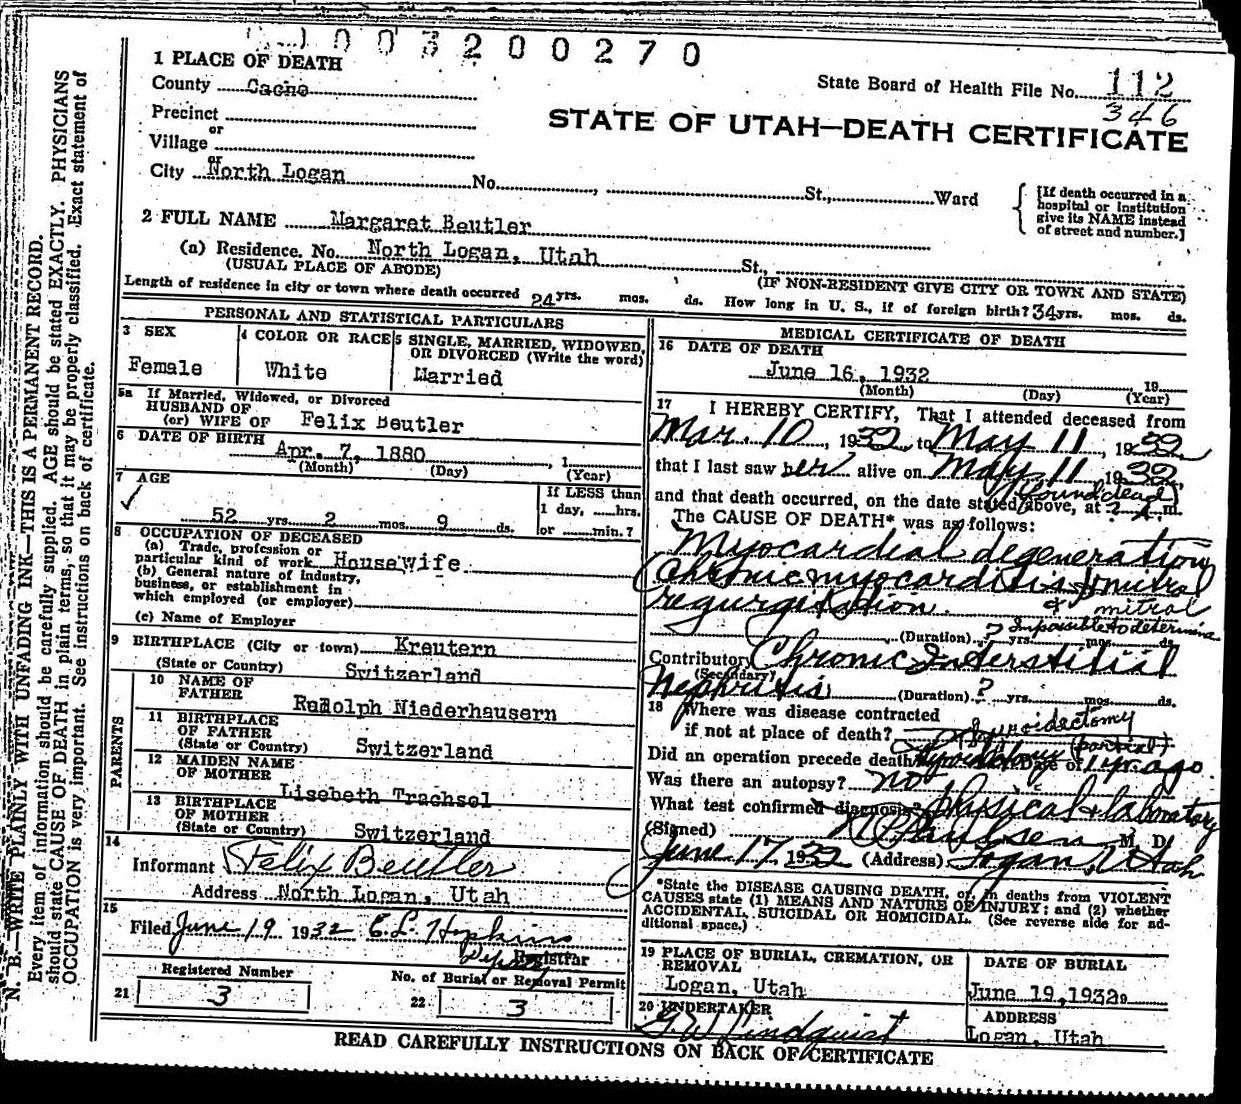 003200270
1 PLACE OF DEATH
County Cache
State Board of Health File No. 112
346
Precinct
or
Village
or
City North Logan No. , St., Ward
STATE OF UTAH—DEATH CERTIFICATE
[If death occurred in a hospital or institution give its NAME instead of street and number.]
2 FULL NAME Margaret Beutler
(a) Residence. No. North Logan, Utah St.,
(USUAL PLACE OF ABODE) (IF NON-RESIDENT GIVE CITY OR TOWN AND STATE)
Length of residence in city or town where death occurred 24 yrs. mos. ds. How long in U. S., if of foreign birth? 34 yrs. mos. ds.
PERSONAL AND STATISTICAL PARTICULARS
3 SEX
Female
4 COLOR OR RACE
White
5 SINGLE, MARRIED, WIDOWED, OR DIVORCED (Write the word)
Married
5a If Married, Widowed, or Divorced
HUSBAND OF
(or) WIFE OF Felix Beutler
6 DATE OF BIRTH
Apr. 7, 1880 , 1
(Month) (Day) (Year)
7 AGE
52 yrs. 2 mos. 9 ds.
If LESS than
1 day, hrs.
or min.?
8 OCCUPATION OF DECEASED
(a) Trade, profession or
particular kind of work Housewife
(b) General nature of industry,
business, or establishment in
which employed (or employer)
(c) Name of Employer
9 BIRTHPLACE (City or town) Kreutern
(State or Country) Switzerland
PARENTS
10 NAME OF
FATHER
Rudolph Niederhausern
11 BIRTHPLACE
OF FATHER
(State or Country) Switzerland
12 MAIDEN NAME
OF MOTHER
Lisebeth Trachsel
13 BIRTHPLACE
OF MOTHER
(State or Country) Switzerland
14
Informant Felix Beutler
Address North Logan, Utah
15
Filed June 19 1932 E. L. Hopkins
Deputy Registrar
Registered Number
21 3
No. of Burial or Removal Permit
22 3
MEDICAL CERTIFICATE OF DEATH
16 DATE OF DEATH
June 16, 1932 19
(Month) (Day) (Year)
17 I HEREBY CERTIFY, That I attended deceased from
Mar. 10, 1932, to May 11, 1932,
that I last saw her alive on May 11, 1932,
(found dead)
and that death occurred, on the date stated above, at ? A m.
The CAUSE OF DEATH* was as follows:
Myocardial degeneration
(Chronic myocarditis & mitral
regurgitation. & mitral
Impossible to determine
(Duration) ? yrs. mos. ds.
Contributory Chronic Interstitial
(Secondary)
Nephritis (Duration) ? yrs. mos. ds.
18 Where was disease contracted
if not at place of death?
Thyroidectomy
(partial)
Did an operation precede death? Date of 1 yr. ago
Was there an autopsy? No
What test confirmed diagnosis? physical & laboratory
(Signed) M. D.
June 17 1932 (Address) Logan, Utah
*State the DISEASE CAUSING DEATH, or, in deaths from VIOLENT
CAUSES state (1) MEANS AND NATURE OF INJURY; and (2) whether
ACCIDENTAL, SUICIDAL OR HOMICIDAL. (See reverse side for ad-
ditional space.)
19 PLACE OF BURIAL, CREMATION, OR
REMOVAL
Logan, Utah
DATE OF BURIAL
June 19, 1932.
20 UNDERTAKER
G. W. Lindquist
ADDRESS
Logan, Utah
READ CAREFULLY INSTRUCTIONS ON BACK OF CERTIFICATE
N. B.—WRITE PLAINLY WITH UNFADING INK—THIS IS A PERMANENT RECORD.
Every item of information should be carefully supplied. AGE should be stated EXACTLY. PHYSICIANS
should state CAUSE OF DEATH in plain terms, so that it may be properly classified. Exact statement of
OCCUPATION is very important. See instructions on back of certificate.